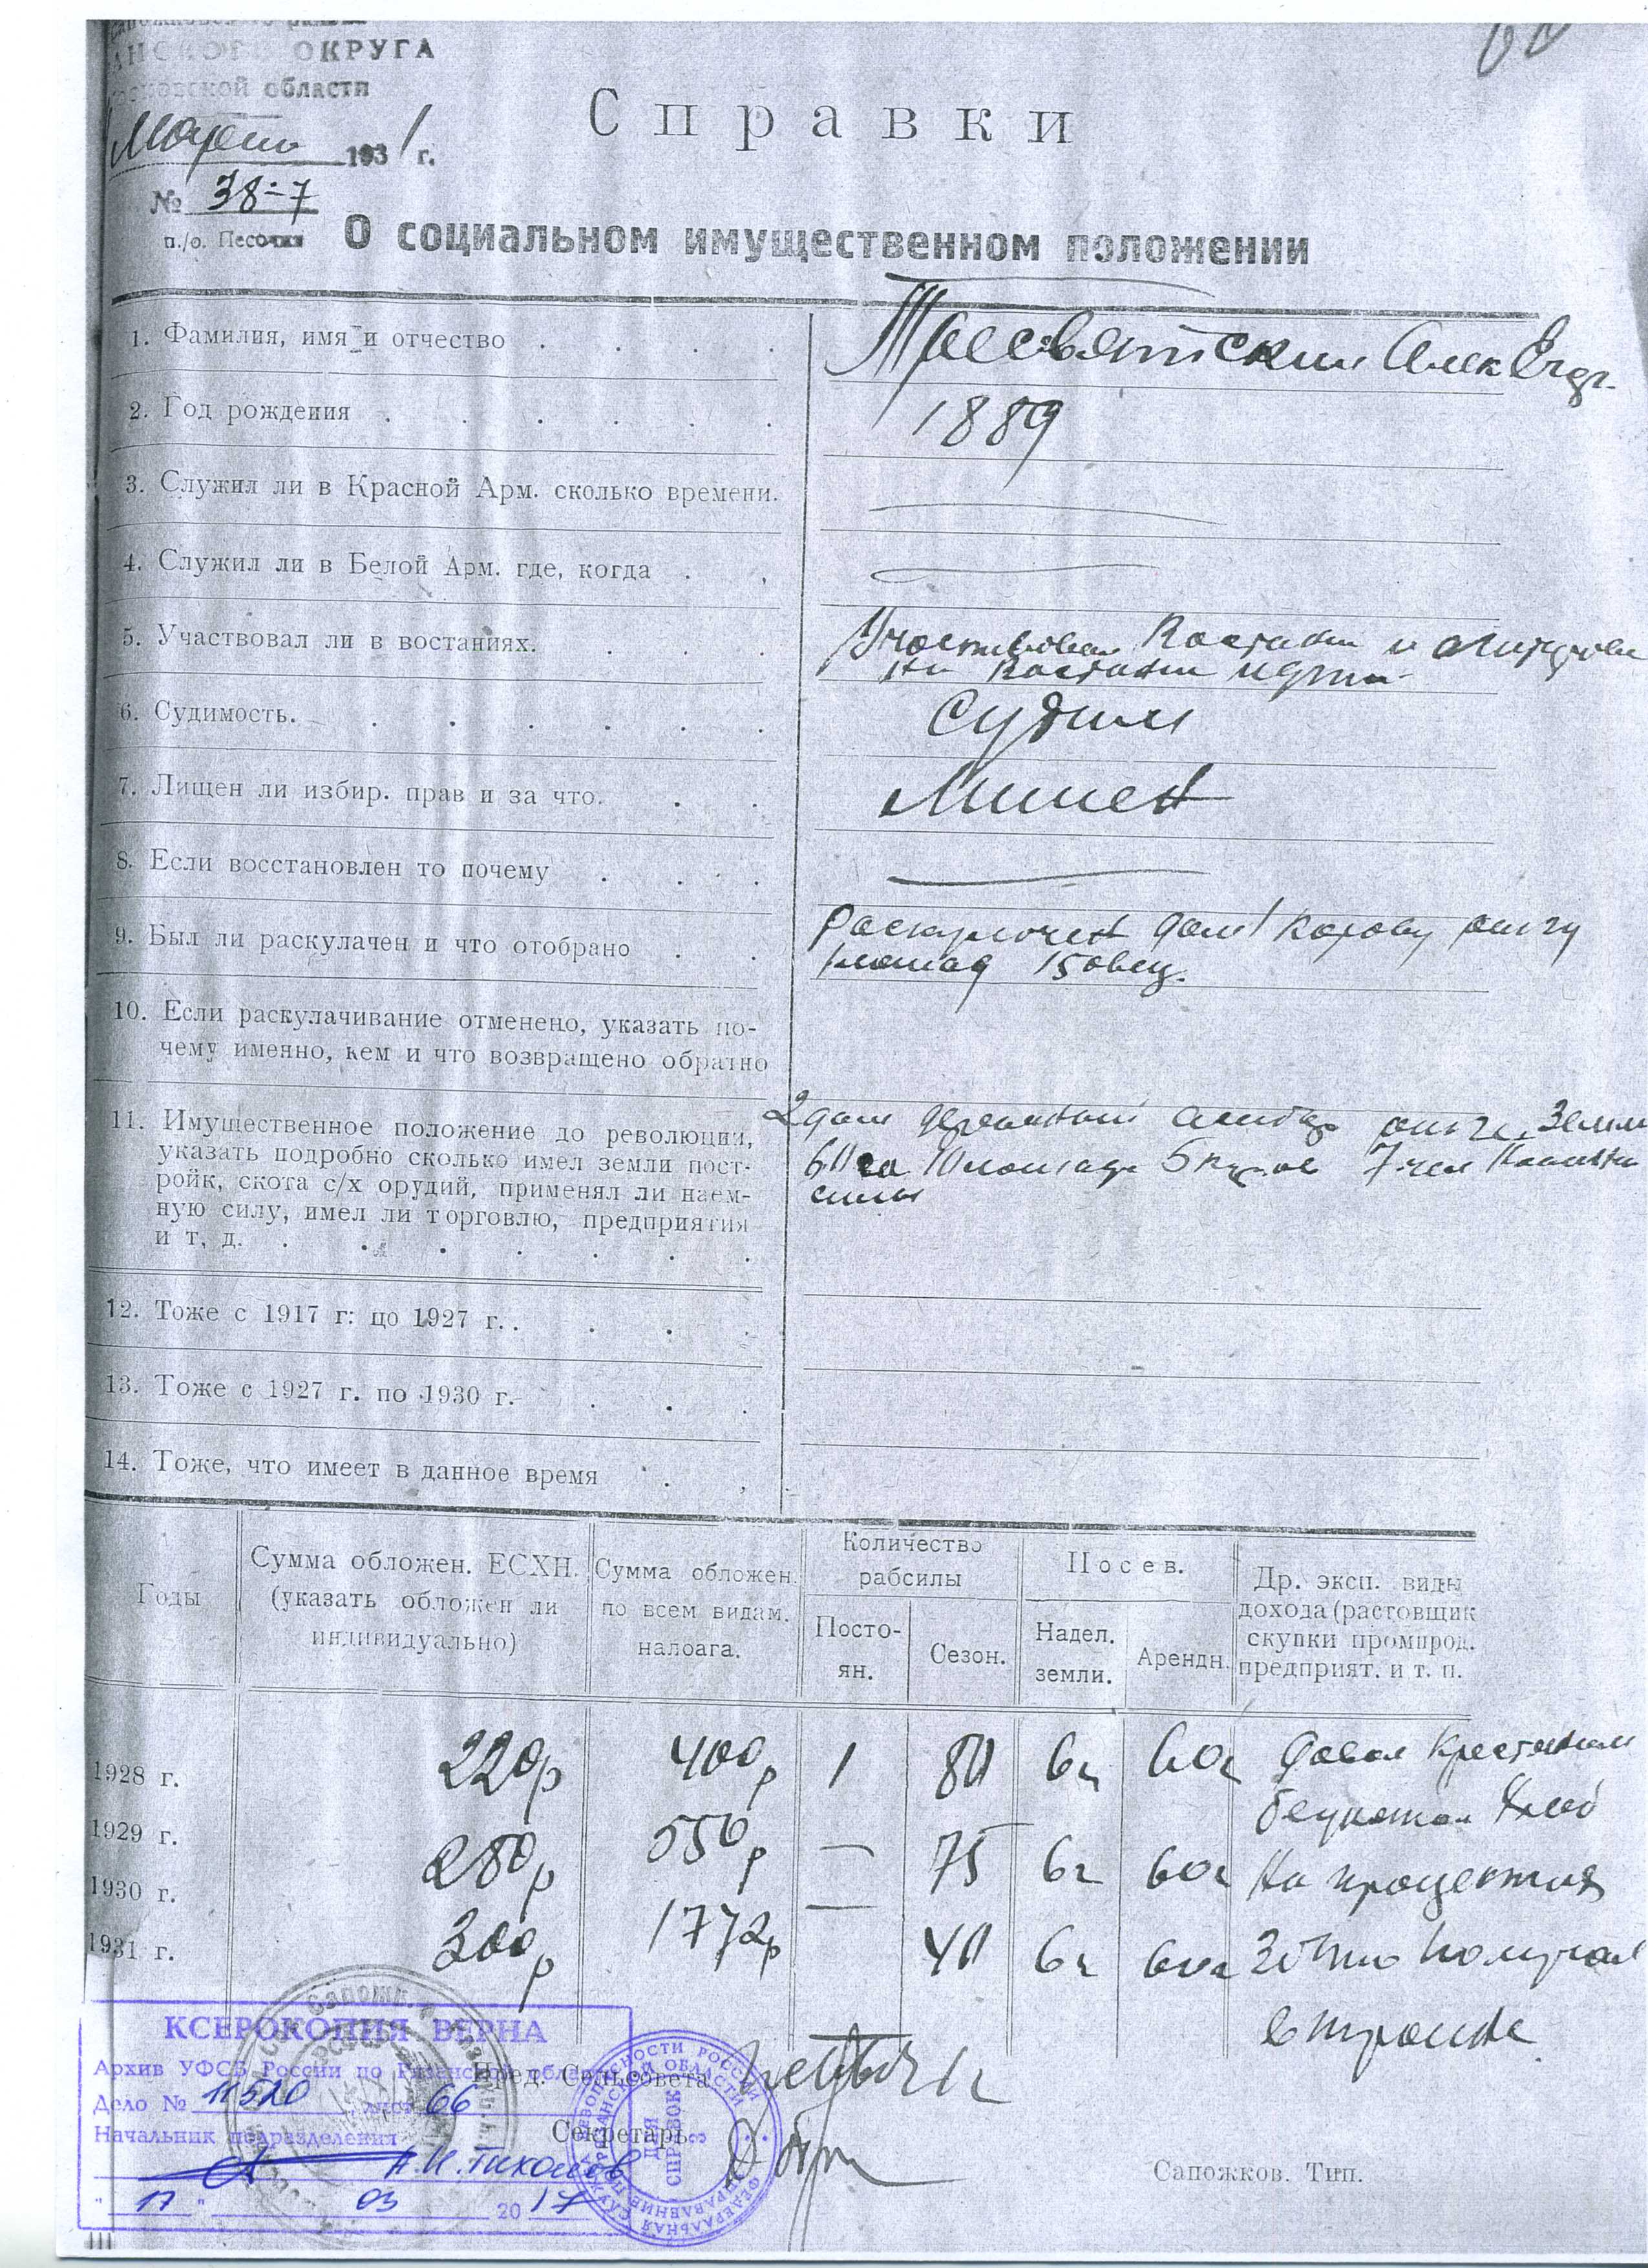 АНСКОГО ОКРУГА
Московской области
193 1 г.
Справки
№ 38-7
п./о. Песочня
О социальном имущественном положении
1. Фамилия, имя и отчество
Тресвятский Алек
2. Год рождения
1889
3. Служил ли в Красной Арм. сколько времени.
4. Служил ли в Белой Арм. где, когда
5. Участвовал ли в востаниях.
Участвовал
6. Судимость.
Судим
7. Лищен ли избир. прав и за что.
Лишен
8. Если восстановлен то почему
9. Был ли раскулачен и что отобрано
Раскулачен дом 1 корову ригу
1 лошад 15 овец.
10. Если раскулачивание отменено, указать по-
чему именно, кем и что возвращено обратно
11. Имущественное положение до революции,
указать подробно сколько имел земли пост-
ройк, скота с/х орудий, применял ли наем-
ную силу, имел ли торговлю, предприятия
и т, д.
2 дом амбар рига земли
60 га 10 лошадь 5 7 чел
силы
12. Тоже с 1917 г: цо 1927 г.
13. Тоже с 1927 г. по 1930 г.
14. Тоже, что имеет в данное время
Годы
Сумма обложен. ЕСХН.
(указать обложен ли
индивидуально)
Сумма обложен.
по всем видам.
налоага.
Количество
рабсилы
Посто-
ян.
Сезон.
Посев.
Надел.
земли.
Арендн.
Др. эксп. виды
дохода (растовщик
скупки промпрод.
предприят. и т. п.
1928 г.
220р 400р 1 80 6г 60г давал крестьянам
1929 г.
280р 550р — 75 6г 60г хлеб
1930 г.
на проценты
300р 1772р — 40 6г 60г
1931 г.
за что получал
втройне
КСЕРОКОПИЯ ВЕРНА
Архив УФСБ России по Рязанской области
Дело № 11520 лист 66
Начальник подразделения
А.И. Тихонов
" 17 " 03 2017
Пред. Сельсовета
Секретарь
ДЛЯ
СПРАВОК
3
Сапожков. Тип.